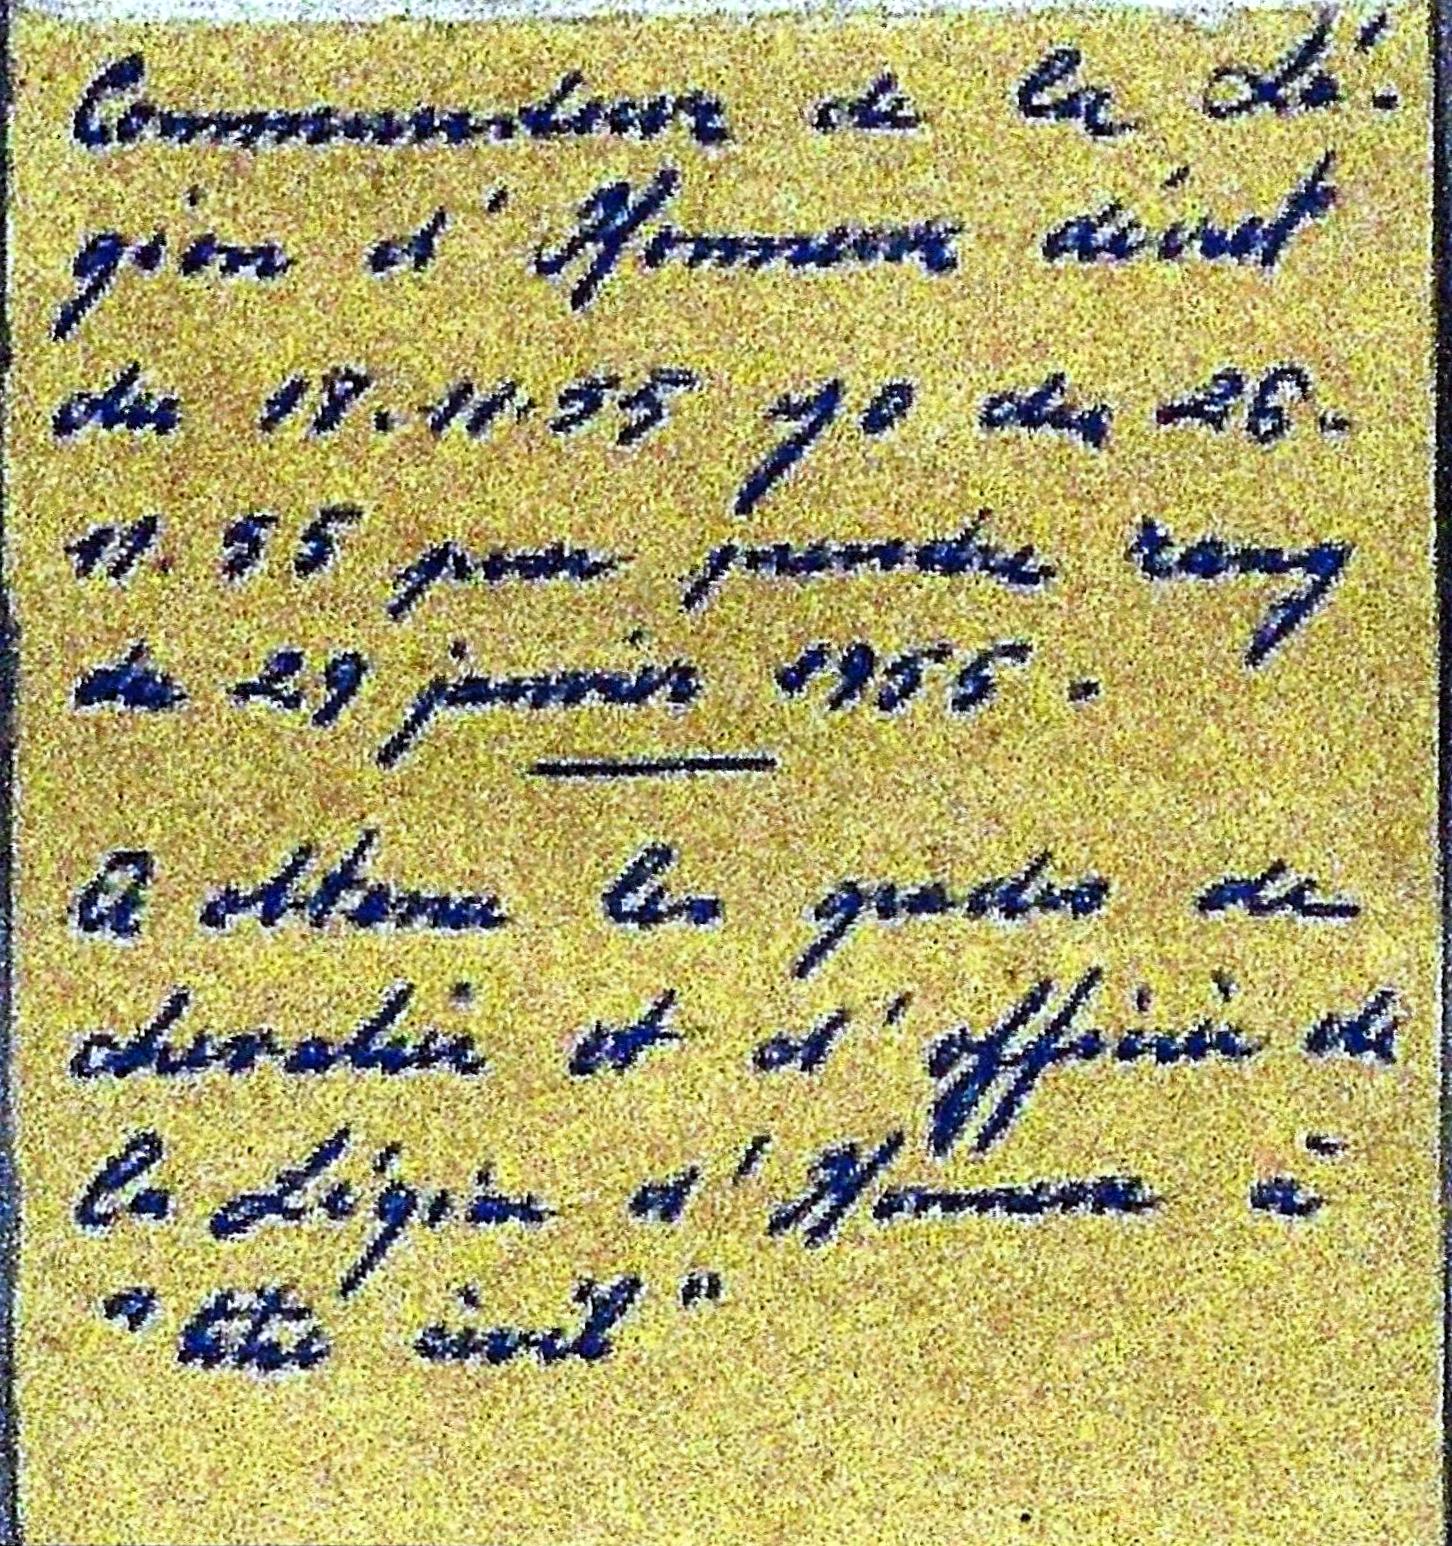 Commandeur de la Lé-
gion d'Honneur décret
du 18.11.55 JO du 26.
11.55 pour prendre rang
du 29 janvier 1955.
A obtenu les grades de
chevalier et d'officier de
la Légion d'Honneur à
"titre civil"